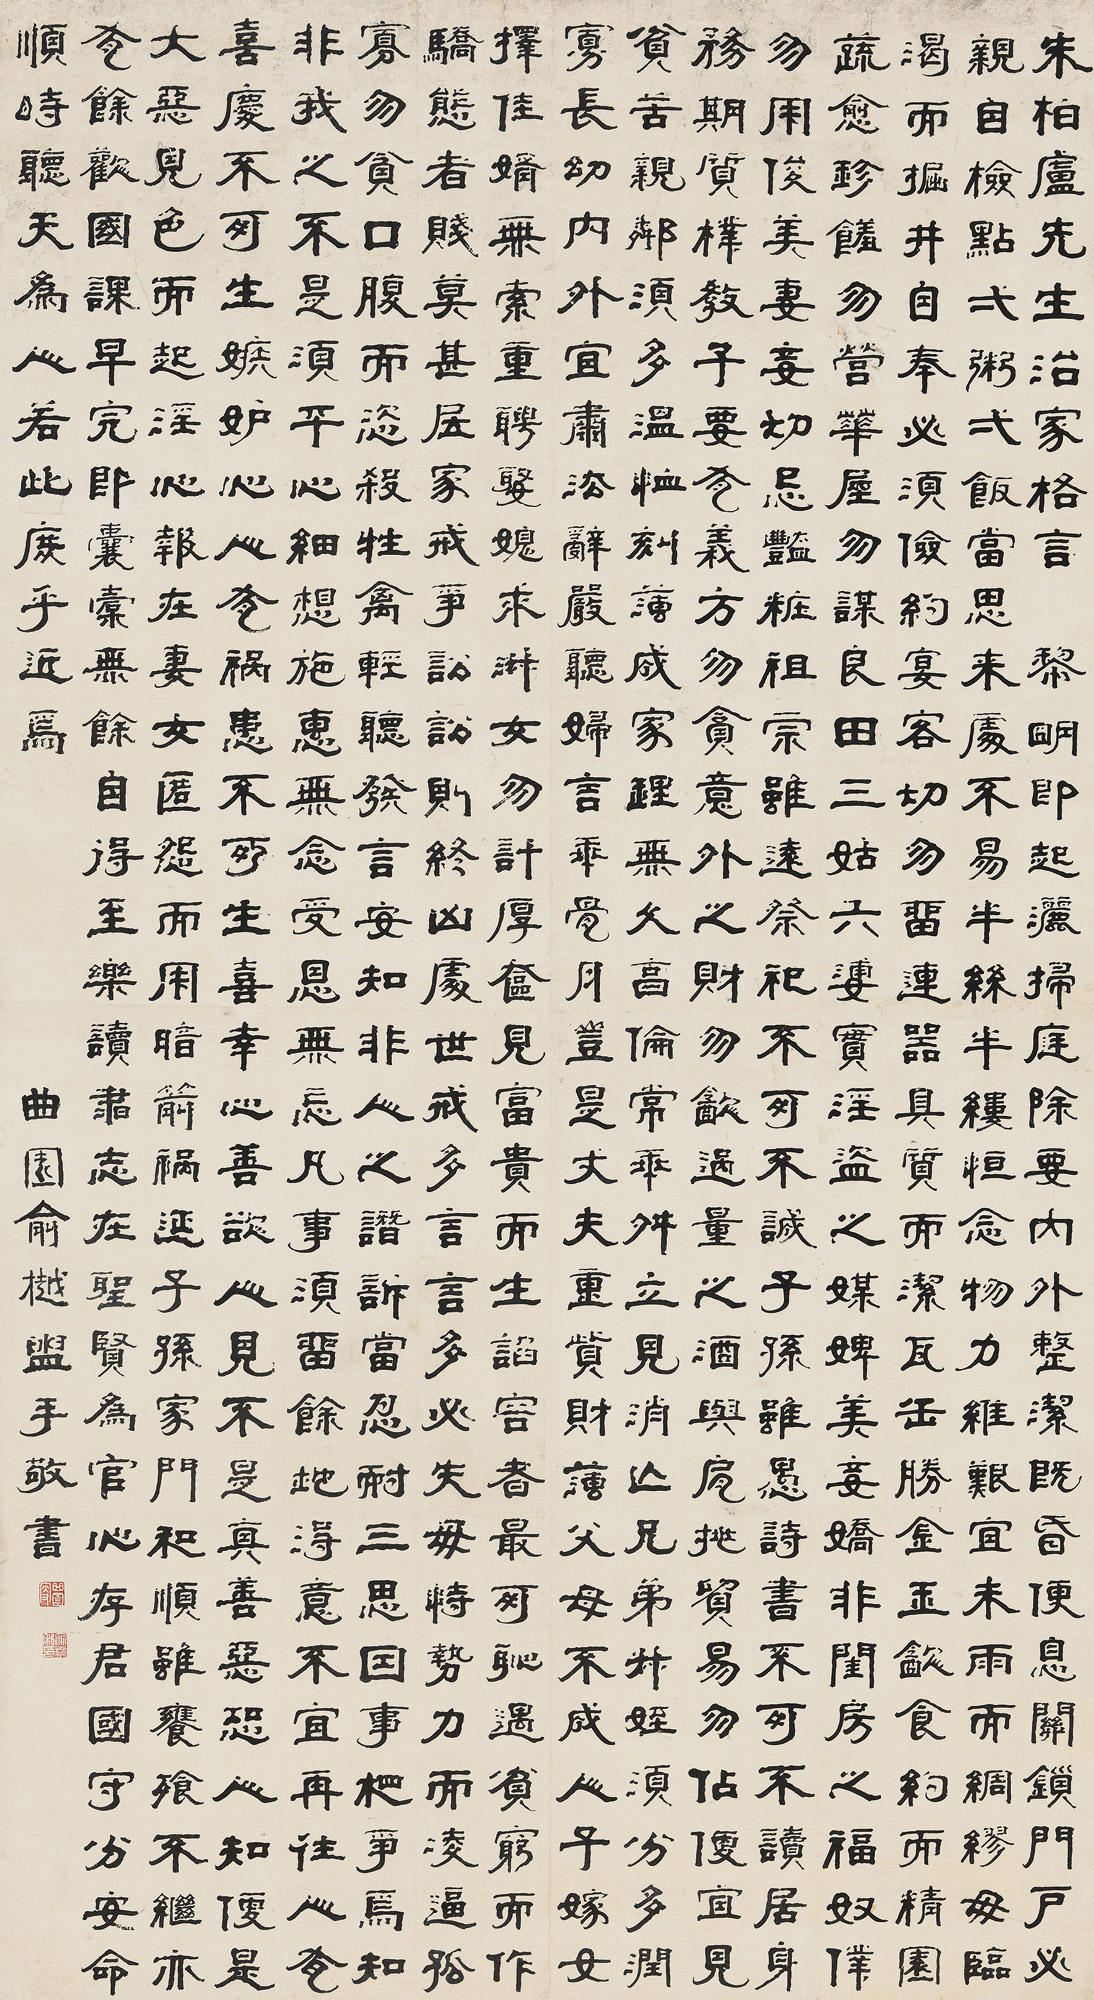 朱柏廬先生治家格言 黎明即起灑掃庭除要內外整潔既昏便息關鎖門戶必
親自檢點弌粥弌飯當思來處不易半絲半縷恒念物力維艱宜未雨而綢繆毋臨
渴而掘井自奉必須儉約宴客切勿畱連器具質而潔瓦缶勝金玉飲食約而精園
蔬愈珍饈勿營華屋勿謀良田三姑六婆實淫盜之媒婢美妾嬌非閨房之福奴僕
勿用俊美妻妾切忌豔粧祖宗雖遠祭祀不可不誠子孫雖愚詩書不可不讀居身
務期質樸教子要有義方勿貪意外之財勿飲過量之酒與肩挑貿易勿佔便宜見
貧苦親鄰須多溫恤刻薄成家理無久享倫常乖舛立見消亡兄弟叔姪須分多潤
寡長幼內外宜肅法辭嚴聽婦言乖骨月豈是丈夫重貲財薄父母不成人子嫁女
擇佳婿無索重聘娶媳求淑女勿計厚奩見富貴而生諂容者最可恥遇貧窮而作
驕態者賤莫甚居家戒爭訟訟則終凶處世戒多言言多必失毋恃勢力而凌逼孤
寡勿貪口腹而恣殺牲禽輕聽發言安知非人之譖訴當忍耐三思因事相爭焉知
非我之不是須平心細想施惠無念受恩無忘凡事須畱餘地得意不宜再往人有
喜慶不可生嫉妒心人有禍患不可生喜幸心善欲人見不是真善惡恐人知便是
大惡見色而起淫心報在妻女匿怨而用暗箭禍延子孫家門和順雖饔飧不繼亦
有餘歡國課早完即囊橐無餘自得至樂讀書志在聖賢為官心存君國守分安命
順時聽天為人若此庶乎近焉 曲園俞樾盥手敬書